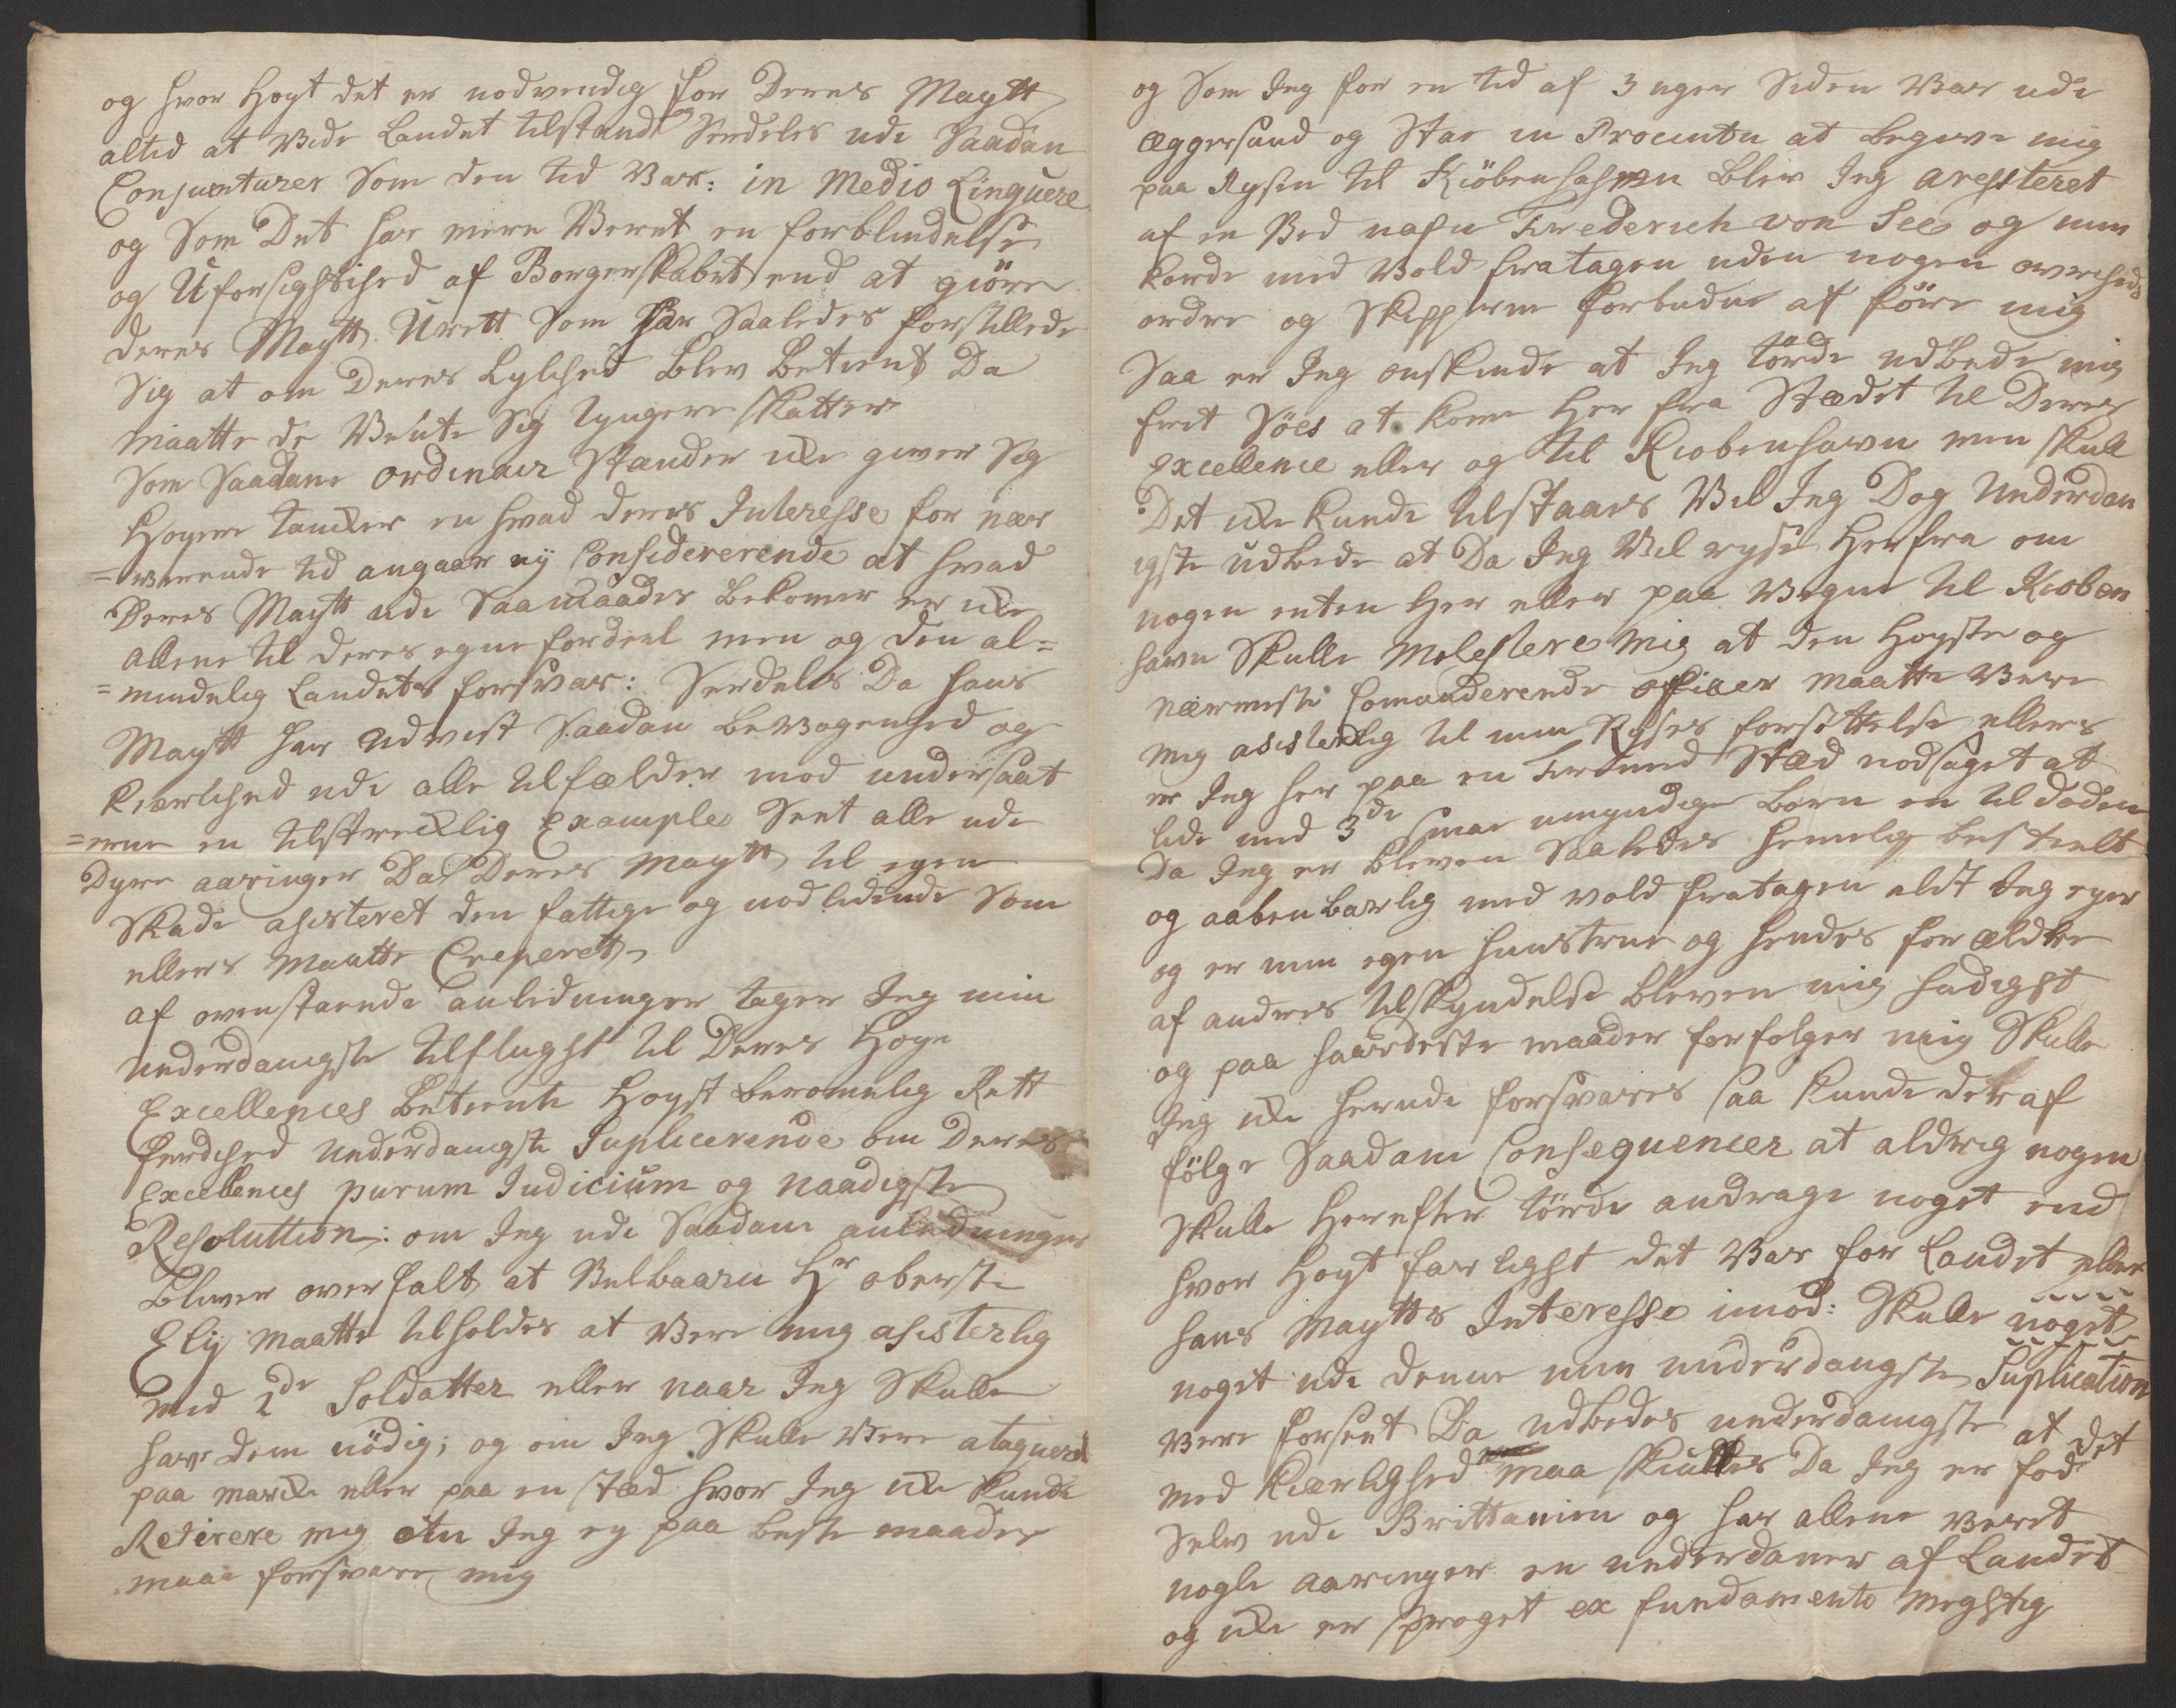 og hvor Høyt det er nødvendig for Deres Maytt
altid at Vide Landet tilstand og Serdeles udi Saadan
Conjuncturer Som den tid Var: in Medio Linquere
og Som Det har mere Veret en forblindelse
og Uforsightihed af Borgerskabet end at giöre
deres Maytt. Urett Som har Saaledes forstillede
Sig at om Deres Lylighed Blev Betient Da
Maatte de Vente Sig tyngere Skatter
Som Saadane ordinair Stander icke giver Sig
Høyere tancker en hvad deres Interesse for nær
=werende tid angaar ey Considererende at hvad
Deres Maytt udi Saamaader bekomer er icke
allene til deres egne fordeel men og den al=
=mindelig Landets forsvar: Serdeles Da hans
Maytt har Udvist Saadan bevogenhed og
kierlished udi alle tilfælder mod undersaat
=erne en tilstreckelig Exemple Sent alle udi
Dyre aaringer Da Deres Maytt til egen
Skade asisteret den fattige og nødlidende Som
ellers Maatte Creperet
af ovenstaende anledninger tager Jeg min
underdanigste tilflught til Deres Høye
Excellences Betiente Høyst berømelig Rett
ferdihed underdanigste Suplicerende om Deres
Excellences purum Judicium og naadigste
Resoluttion: om Jeg udi Saadane anledninger
bliver overfalt, at Velbaarn Hr oberste
Ely maatte tilholdes at Vere mig asisterlig
med 2de Soldatter eller naar Jeg Skulle
have dem nödig; og om Jeg Skulle Vere ataqueret
paa marcke eller paa en stæd hvor Jeg icke kunde
Retirere mig om Jeg ey paa beste maader
maae forsvare mig
og Som Jeg for en tid af 3 uger Siden Var udi
Eggersund og Stae in Procintu at begive mig
paa Reysen til Kiöbenhafn blev Jeg aressteret
af en Ved nafn Frederich von See og min
korde med Vold fratagen uden nogen øvriheds
ordre og Skipperne forbuden at före mig
Saa er Jeg ønskende at Jeg törde udbede mig
frit Söes at kome Her fra Stædet til Deres
Excellence eller og til Kiobenhavn men skull
Det icke kunde tilstaaes Vil Jeg Dog Underdan
igste udbede at Da Jeg Vil reyse Herfra om
nogen enten Her eller paa Vegne til Kioben
havn Skulle Molestere Mig at den Høyste og
nærmeste Comanderende officer maatte Vere
mig asisterlig til min Reyses forsettelse ellers
er Jeg her paa en fremmed Stæd nødsaget at
lide med 3de smae umyndige børn en til døden
Da Jeg er bleven Saaledes hemelig bestielt
og aabenbarlig med vold fratagen aldt Jeg eyer
og er min egen huustrue og hendes forældre
af andres tilskyndelse bleven mig hadigst
og paa haardeste maader forfølger mig Skulle
Jeg icke herudi forsvares saa kunde der af
fölge Saadane Consequencer at aldrig nogen
Skulle Herefter törde andrage noget end
hvor Høyt farlighst det Var for Landet eller
hans Maytts Interesse imod: Skulle noget
noget udi denne min underdanigste Suplication
vere forseet Da udbedes underdanigste at det
med kiærlighed maa skiulles Da Jeg er fød
Selv udi Brittanien og har allene veret
nogle aaringer en underdaner af Landet
og icke er sproget ex fundamento meghtig